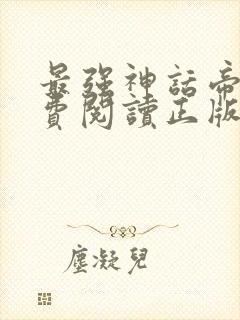 最強神話帝
費閱讀正版
塵凝兒